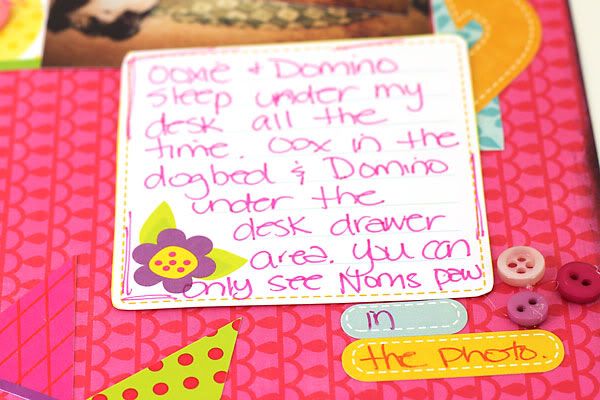 Ooxie & Domino
sleep under my
desk all the
time. Oox in the
dogbed & Domino
under the
desk drawer
area. You can
only see Noms paw
in
the photo.